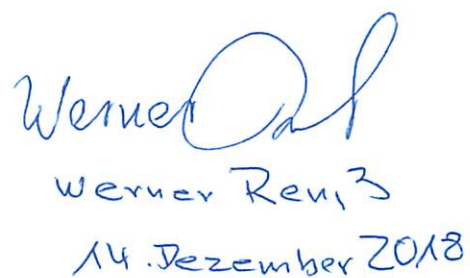 Werner
Werner Reniß
14. Dezember 2018